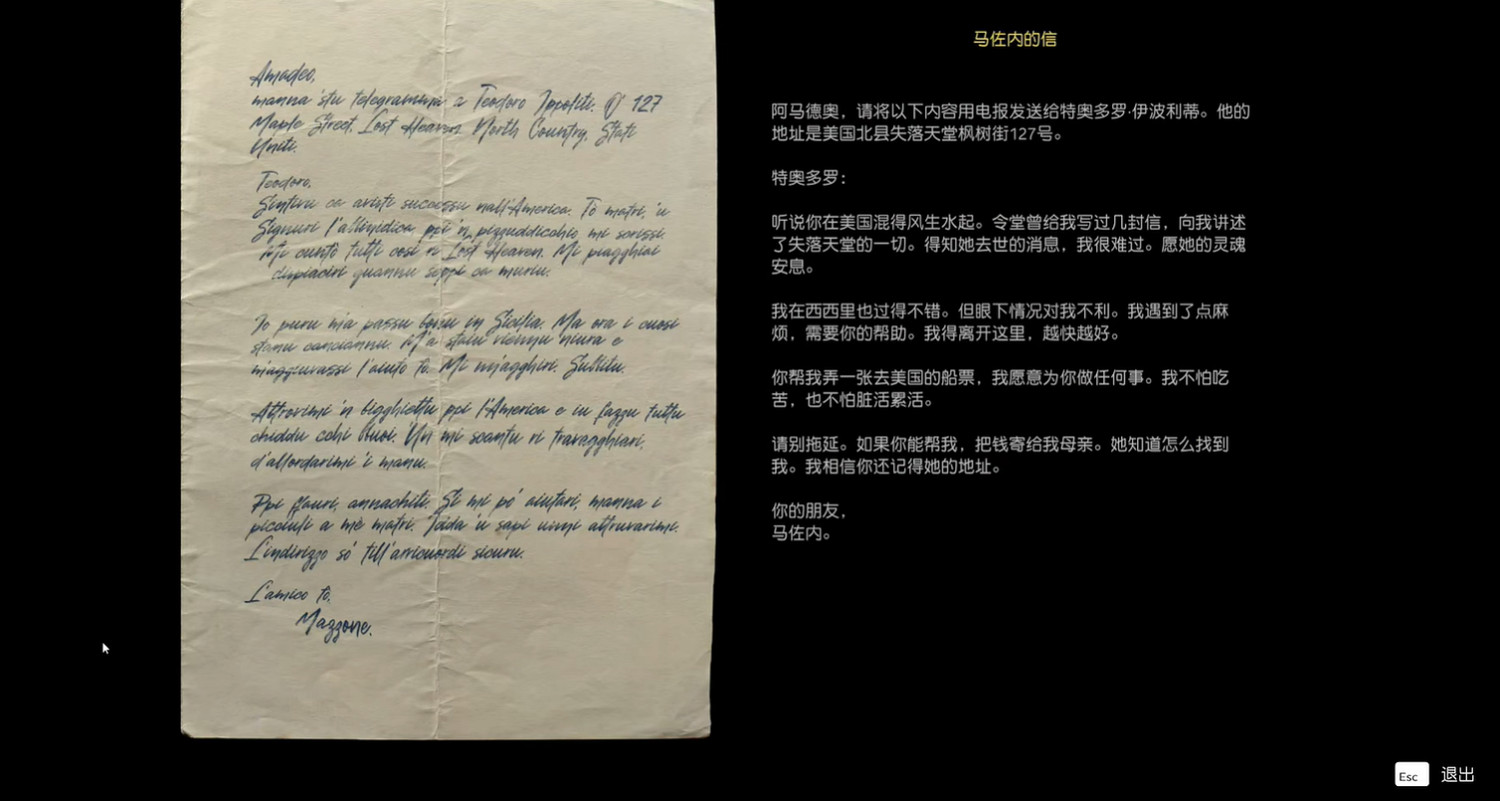 Amadeo,
manna 'stu telegramma a Teodoro Ippoliti. 127
Maple Street, Lost Heaven North Country, Stati
Uniti.
Teodoro,
Sintivu ca avisti successu nall'America. Tò matri, 'u
Signuri l'abbinidica ppi 'n pizzuddicchio, mi scrissi.
Mi cuntò tutti così ri Lost Heaven. Mi piagghiai
dispiaciri quannu seppi ca muriu.
Io puru mia passu bonu in Sicilia. Ma ora i cuosi
stanu canciannu. M'a stalu niura e
l'aiuto tò. Mi nn'agghiri. Subbitu.
Attrovimi 'n bigghiettu ppi l'America e iu fazzu tuttu
chiddu cchi vuoi. 'Un mi scantu ri travagghiari,
d'allordarimi 'i manu.
Ppi fauri, annachiti. Si mi pò aiutari, manna i
picciuli a mè matri. 'Idda 'u sapi unni attruvarimi.
L'indirizzo sò till'arricuordi sicuru.
L'amico tò,
Mazzone.
马佐内的信
阿马德奥，请将以下内容用电报发送给特奥多罗·伊波利蒂。他的
地址是美国北县失落天堂枫树街127号。
特奥多罗：
听说你在美国混得风生水起。令堂曾给我写过几封信，向我讲述
了失落天堂的一切。得知她去世的消息，我很难过。愿她的灵魂
安息。
我在西西里也过得不错。但眼下情况对我不利。我遇到了点麻
烦，需要你的帮助。我得离开这里，越快越好。
你帮我弄一张去美国的船票，我愿意为你做任何事。我不怕吃
苦，也不怕脏活累活。
请别拖延。如果你能帮我，把钱寄给我母亲。她知道怎么找到
我。我相信你还记得她的地址。
你的朋友，
马佐内。
Esc 退出